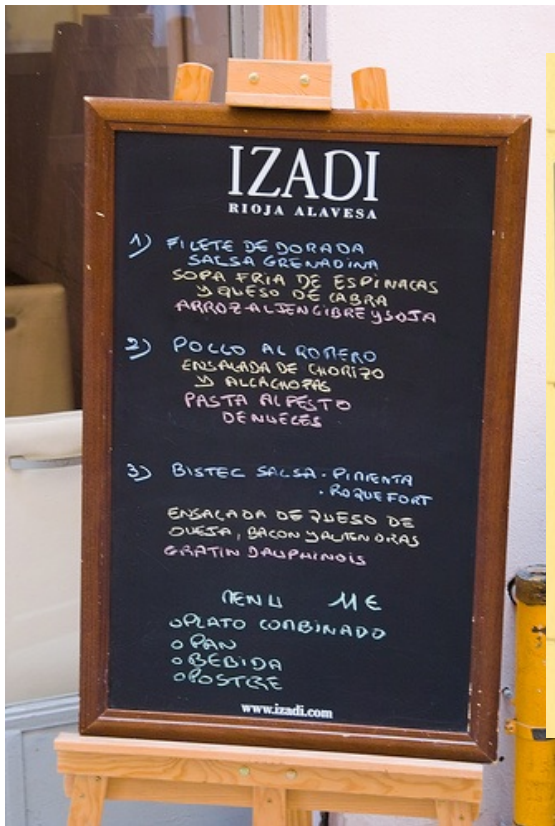 IZADI
RIOJA ALAVESA
1) FILETE DE DORADA
SALSA GRENADINA
SOPA FRIA DE ESPINACAS
Y QUESO DE CABRA
ARROZ AL JENGIBRE Y SOJA
2) POLLO AL ROMERO
ENSALADA DE CHORIZO
Y ALCACHOFAS
PASTA AL PESTO
DE NUECES
3) BISTEC SALSA · PIMIENTA
· ROQUEFORT
ENSALADA DE QUESO DE
OVEJA, BACON Y ALMENDRAS
GRATIN DAUPHINOIS
MENU 11€
o PLATO COMBINADO
o PAN
o BEBIDA
o POSTRE
www.izadi.com